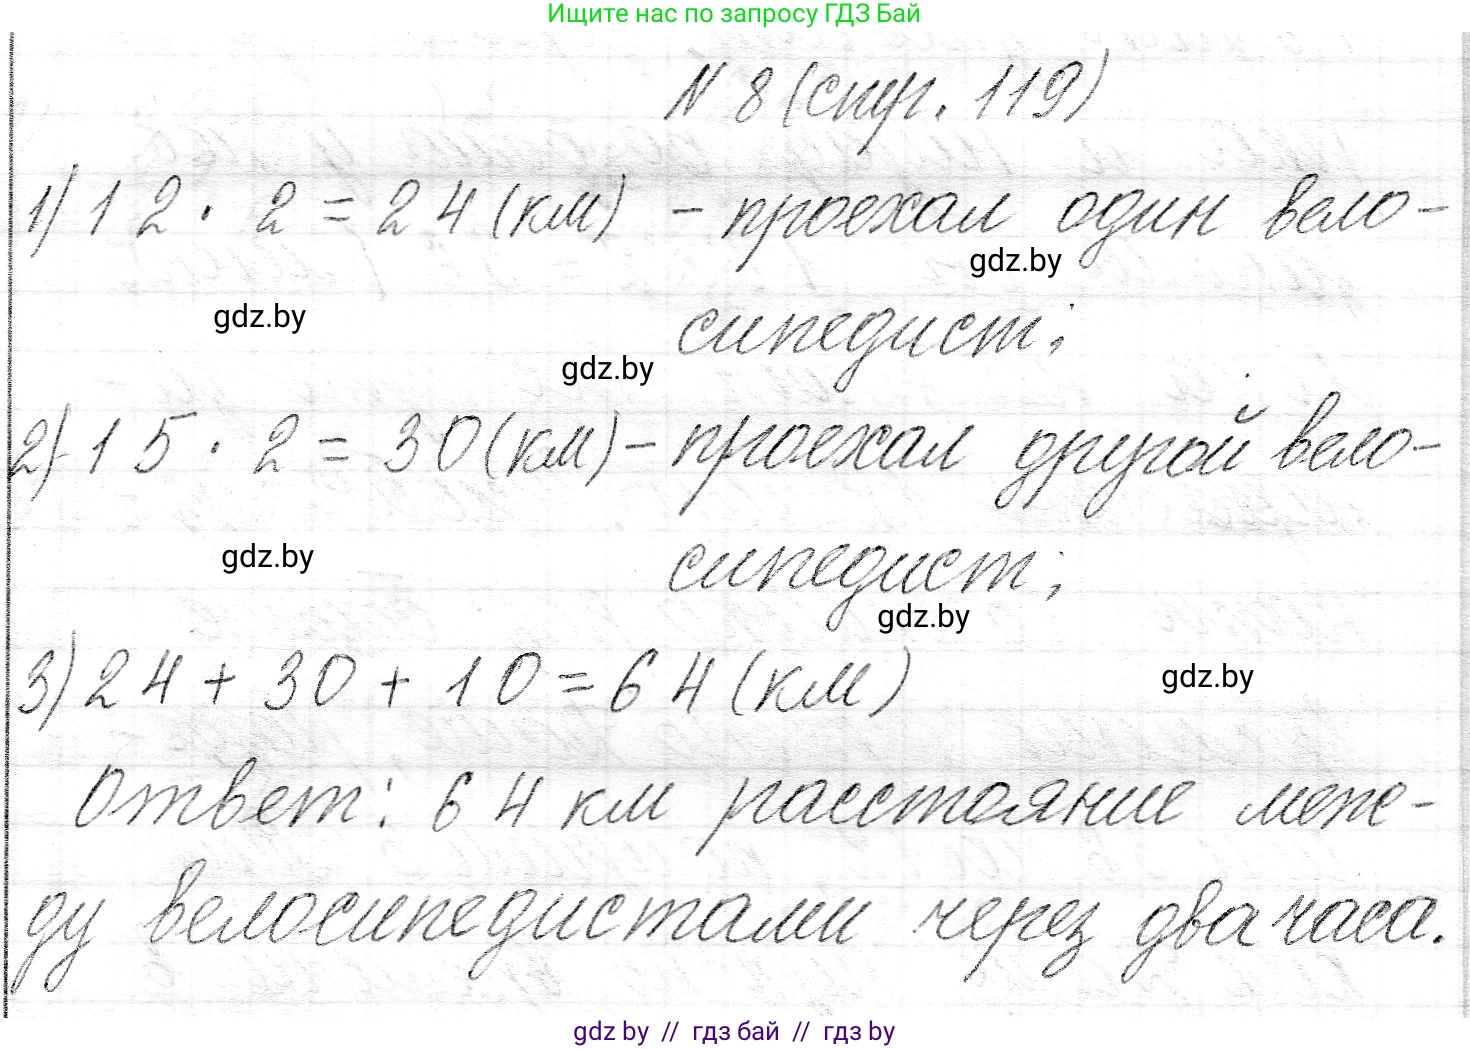 Ищите нас по запросу ГДЗ Бай
N 8 (стр. 119)
1) 12 · 2 = 24 (км) - проехал один вело-
gdz.by
gdz.by
сипедист;
gdz.by
2) 15 · 2 = 30 (км) - проехал другой вело-
gdz.by
сипедист;
gdz.by
3) 24 + 30 + 10 = 64 (км)
gdz.by
Ответ: 64 км расстояние меж-
ду велосипедистами через два часа.
gdz by // гдз бай // гдз by